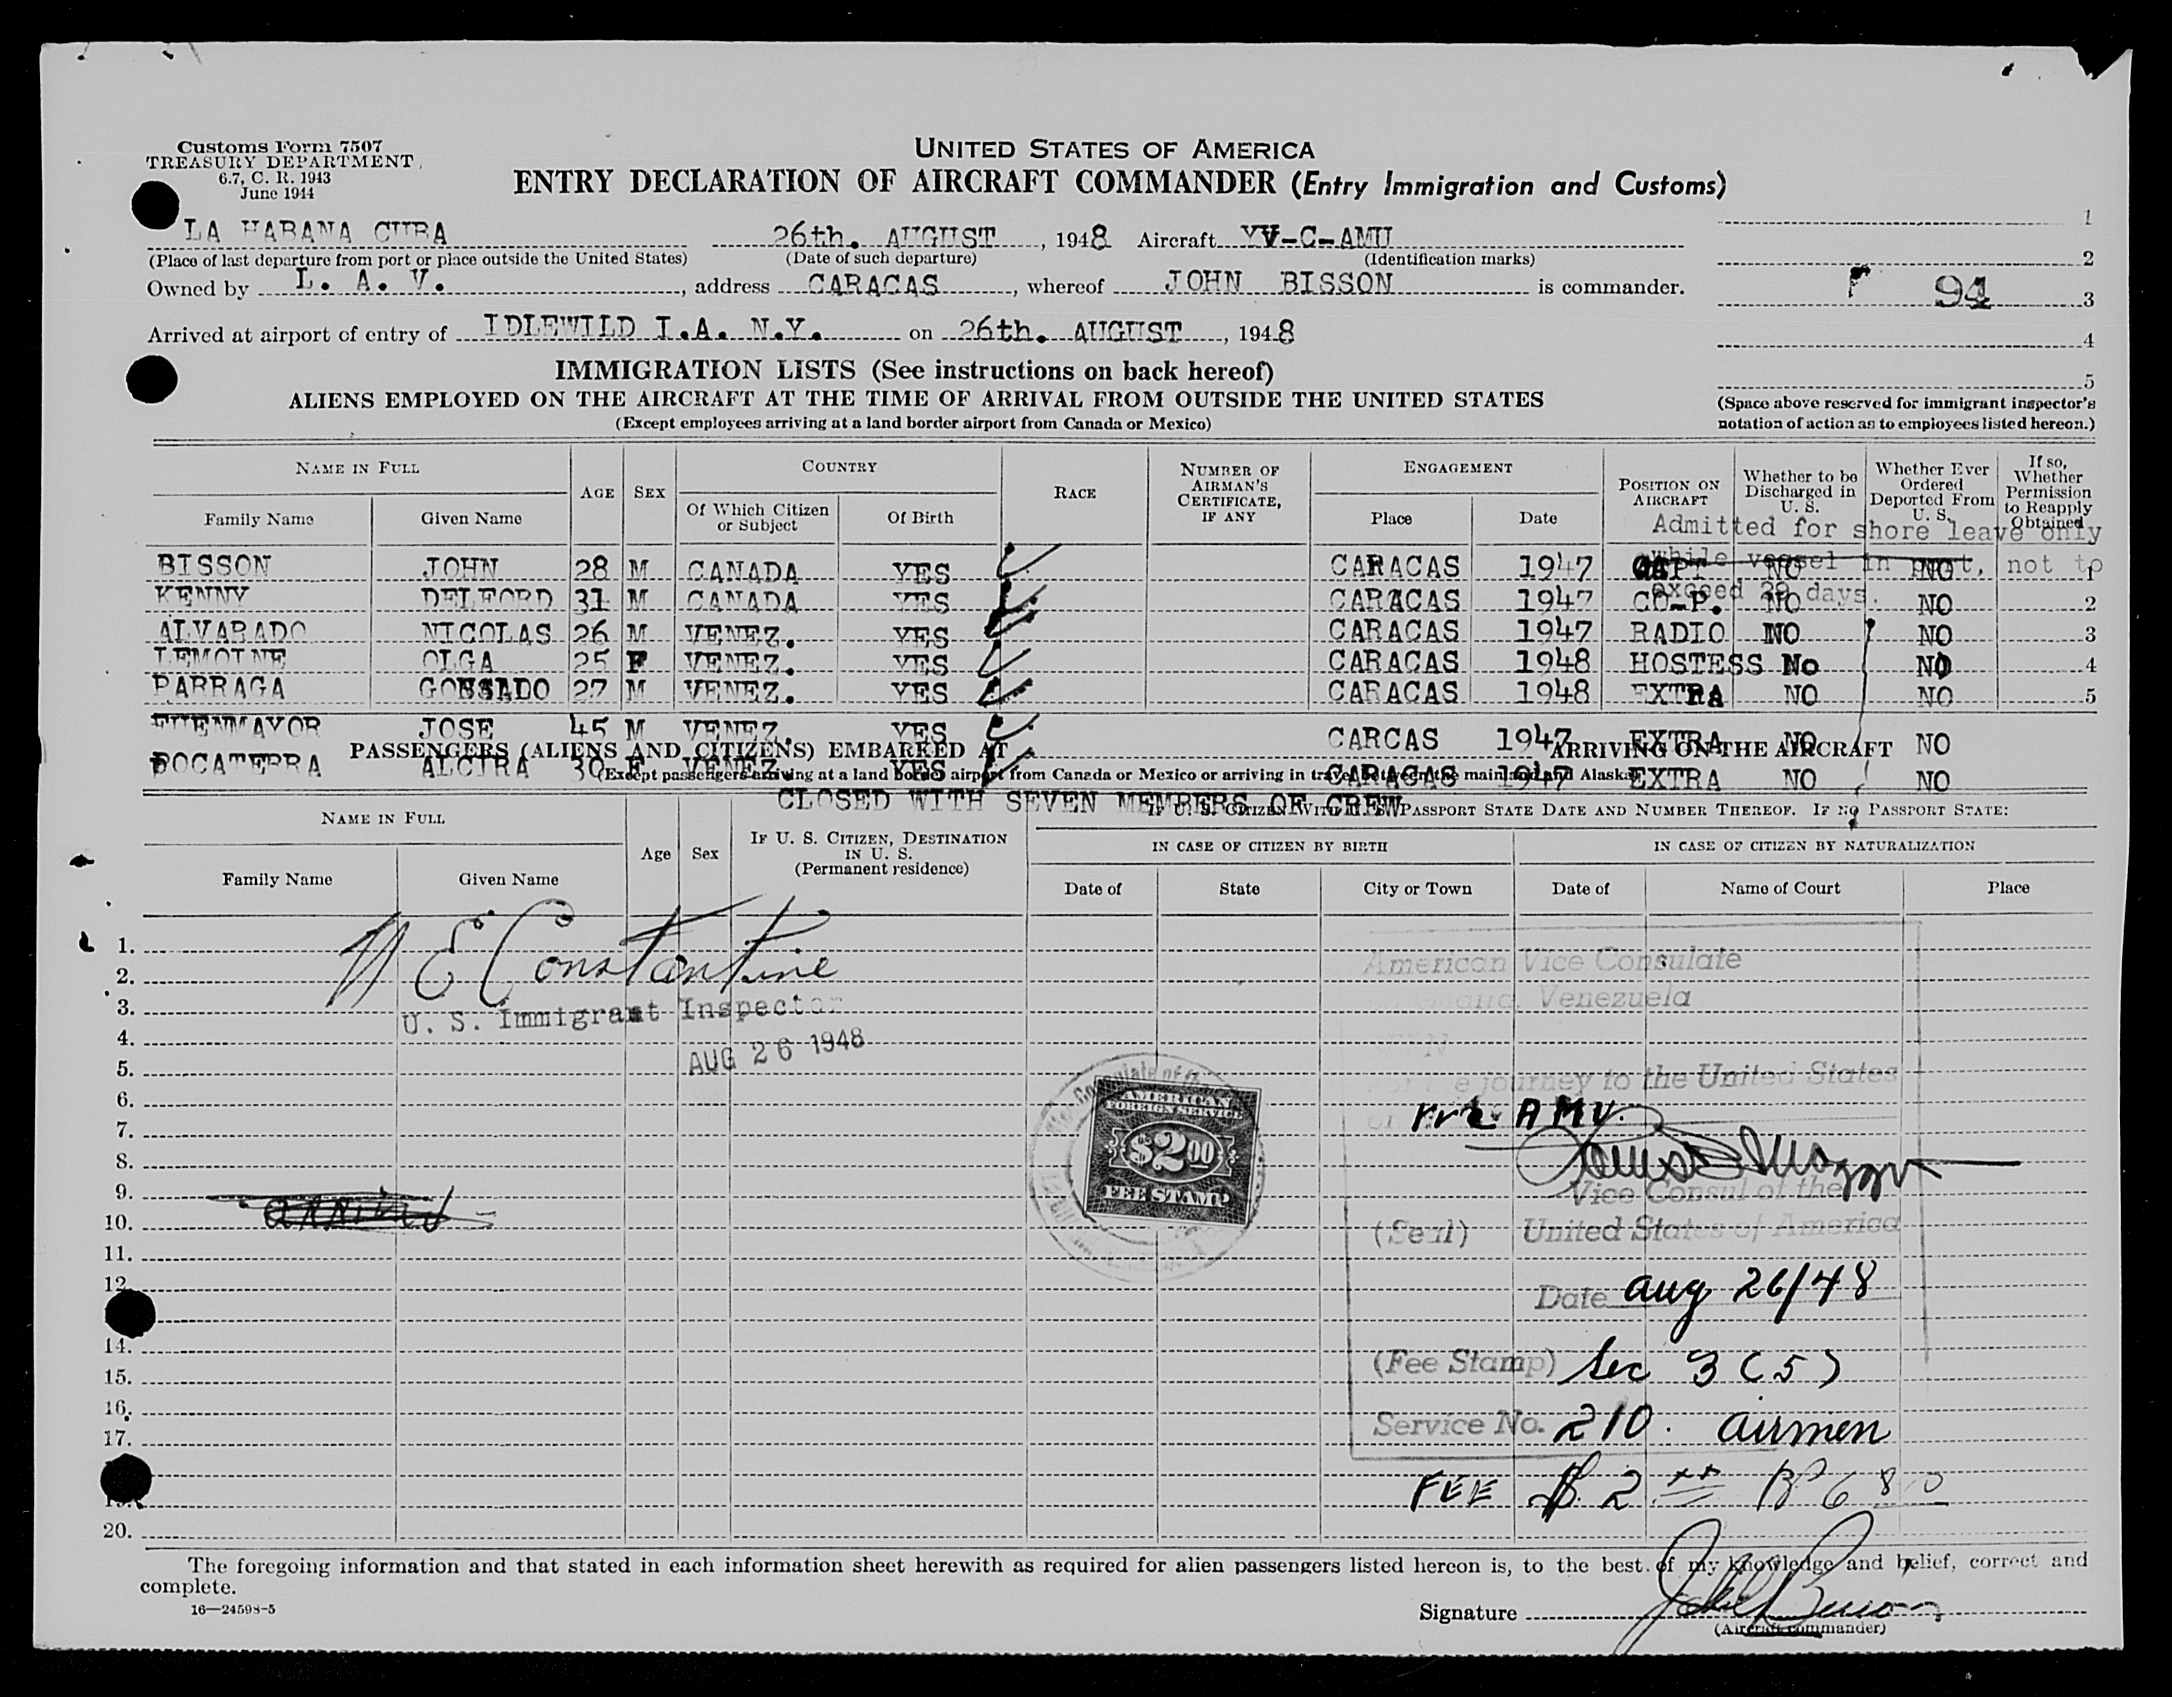 Customs Form 7507
TREASURY DEPARTMENT
6.7, C. R. 1943
June 1944
UNITED STATES OF AMERICA
ENTRY DECLARATION OF AIRCRAFT COMMANDER (Entry Immigration and Customs)
LA HABANA CUBA 26th. AUGUST, 1948 Aircraft YV-C-AMU 1
(Place of last departure from port or place outside the United States) (Date of such departure) (Identification marks) 2
Owned by L. A. V., address CARACAS, whereof JOHN BISSON is commander. 94 3
Arrived at airport of entry of IDLEWILD I.A. N.Y. on 26th. AUGUST, 1948 4
IMMIGRATION LISTS (See instructions on back hereof) 5
ALIENS EMPLOYED ON THE AIRCRAFT AT THE TIME OF ARRIVAL FROM OUTSIDE THE UNITED STATES
(Except employees arriving at a land border airport from Canada or Mexico)
(Space above reserved for immigrant inspector's
notation of action as to employees listed hereon.)
NAME IN FULL AGE SEX COUNTRY RACE NUMBER OF AIRMAN'S CERTIFICATE, IF ANY ENGAGEMENT POSITION ON AIRCRAFT Whether to be Discharged in U. S. Whether Ever Ordered Deported From U. S. If so, Whether Permission to Reapply Obtained
Family Name Given Name Of Which Citizen or Subject Of Birth Place Date
Admitted for shore leave only
while vessel in port, not to
exceed 29 days.
BISSON JOHN 28 M CANADA YES CARACAS 1947 CAPT NO NO 1
KENNY DELFORD 31 M CANADA YES CARACAS 1947 CO-P. NO NO 2
ALVARADO NICOLAS 26 M VENEZ. YES CARACAS 1947 RADIO NO NO 3
LEMOINE OLGA 25 F VENEZ. YES CARACAS 1948 HOSTESS No NO 4
PARRAGA 27 M VENEZ. YES CARACAS 1948 EXTRA NO NO 5
FUENMAYOR JOSE 45 M VENEZ. YES CARCAS 1947 EXTRA NO NO
PASSENGERS (ALIENS AND CITIZENS) EMBARKED AT ARRIVING ON THE AIRCRAFT
BOCATERRA ALCIRA 30 F VENEZ. YES CARACAS 1947 EXTRA NO NO
(Except passengers arriving at a land border airport from Canada or Mexico or arriving in travel between the mainland and Alaska)
CLOSED WITH SEVEN MEMBERS OF CREW
NAME IN FULL Age Sex IF U. S. CITIZEN, DESTINATION IN U. S. (Permanent residence) IF U. S. CITIZEN WITH U. S. PASSPORT STATE DATE AND NUMBER THEREOF. IF NO PASSPORT STATE:
IN CASE OF CITIZEN BY BIRTH IN CASE OF CITIZEN BY NATURALIZATION
Family Name Given Name Date of State City or Town Date of Name of Court Place
1.
N E Constantine American Vice Consulate
2.
3. U. S. Immigrant Inspector Venezuela
4.
AUG 26 1948
5. journey to the United States
6.
AMERICAN
FOREIGN SERVICE
$2.00
FEE STAMP
YVC AMU.
7.
8.
9. Vice Consul of the
10. (Seal) United States of America
11.
12. Date Aug 26/48
14.
15. (Fee Stamp) Sec 3 (5)
16.
17. Service No. 210. airmen
19. FEE $ 2
20.
The foregoing information and that stated in each information sheet herewith as required for alien passengers listed hereon is, to the best of my knowledge and belief, correct and
complete.
16—24598-5
Signature John Bisson
(Aircraft commander)